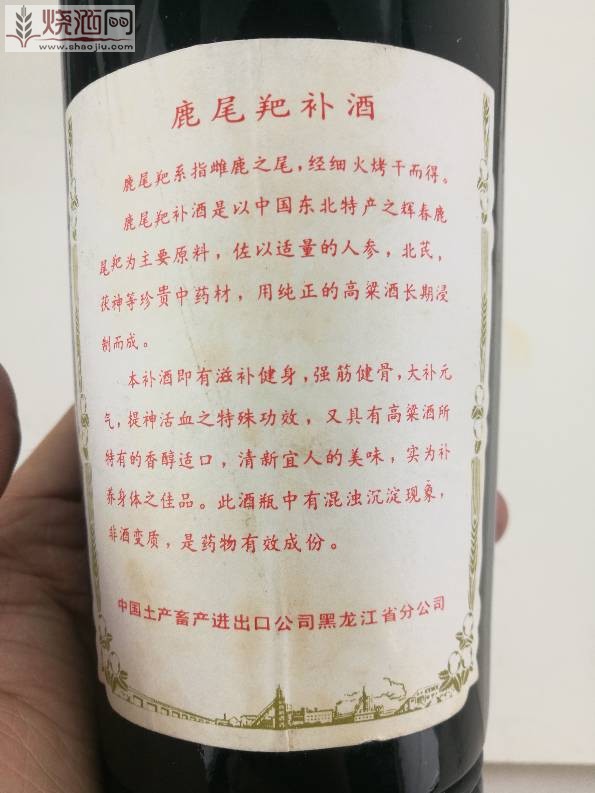 烧酒网
www.shaojiu.com
鹿尾羓补酒
鹿尾羓系指雌鹿之尾，经细火烤干而得。
鹿尾羓补酒是以中国东北特产之辉春鹿
尾羓为主要原料，佐以适量的人参，北芪，
茯神等珍贵中药材，用纯正的高粱酒长期浸
制而成。
本补酒即有滋补健身，强筋健骨，大补元
气，提神活血之特殊功效，又具有高粱酒所
特有的香醇适口，清新宜人的美味，实为补
养身体之佳品。此酒瓶中有混浊沉淀现象，
非酒变质，是药物有效成份。
中国土产畜产进出口公司黑龙江省分公司